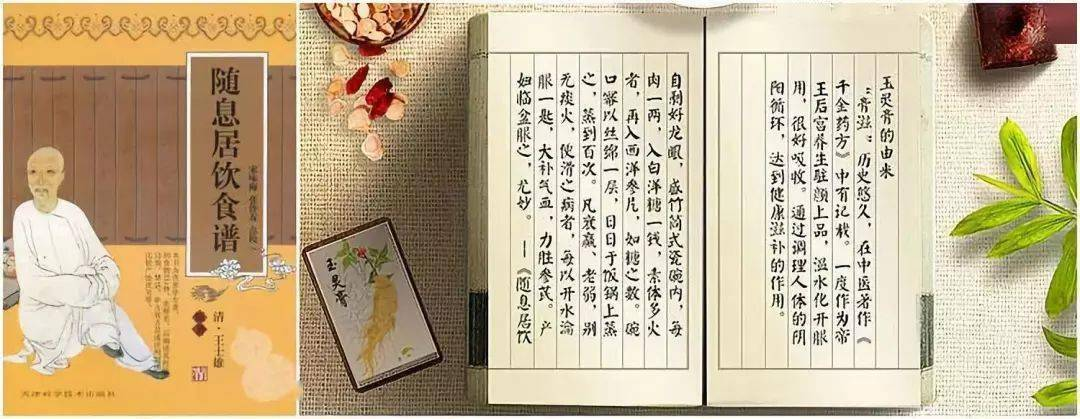 随息居饮食谱
清·王士雄
天津科学技术出版社
玉灵膏的由来
“膏滋”历史悠久，在中医著作
千金药方》中有记载。一度作为帝
王后宫养生驻颜上品，温水化开服
用，很好吸收。通过调理人体的阴
阳循环，达到健康滋补的作用。
自剥好龙眼，盛竹筒式瓷碗内，每
肉一两，入白洋糖一钱，素体多火
者，再入西洋参片，如糖之数。碗
口幂以丝绵一层，日日于饭锅上蒸
之，蒸到百次。凡衰羸、老弱，别
无痰火，便滑之病者，每以开水瀹
服一匙，大补气血，力胜参芪。产
妇临盆服之，尤妙。—《随息居饮
玉灵膏